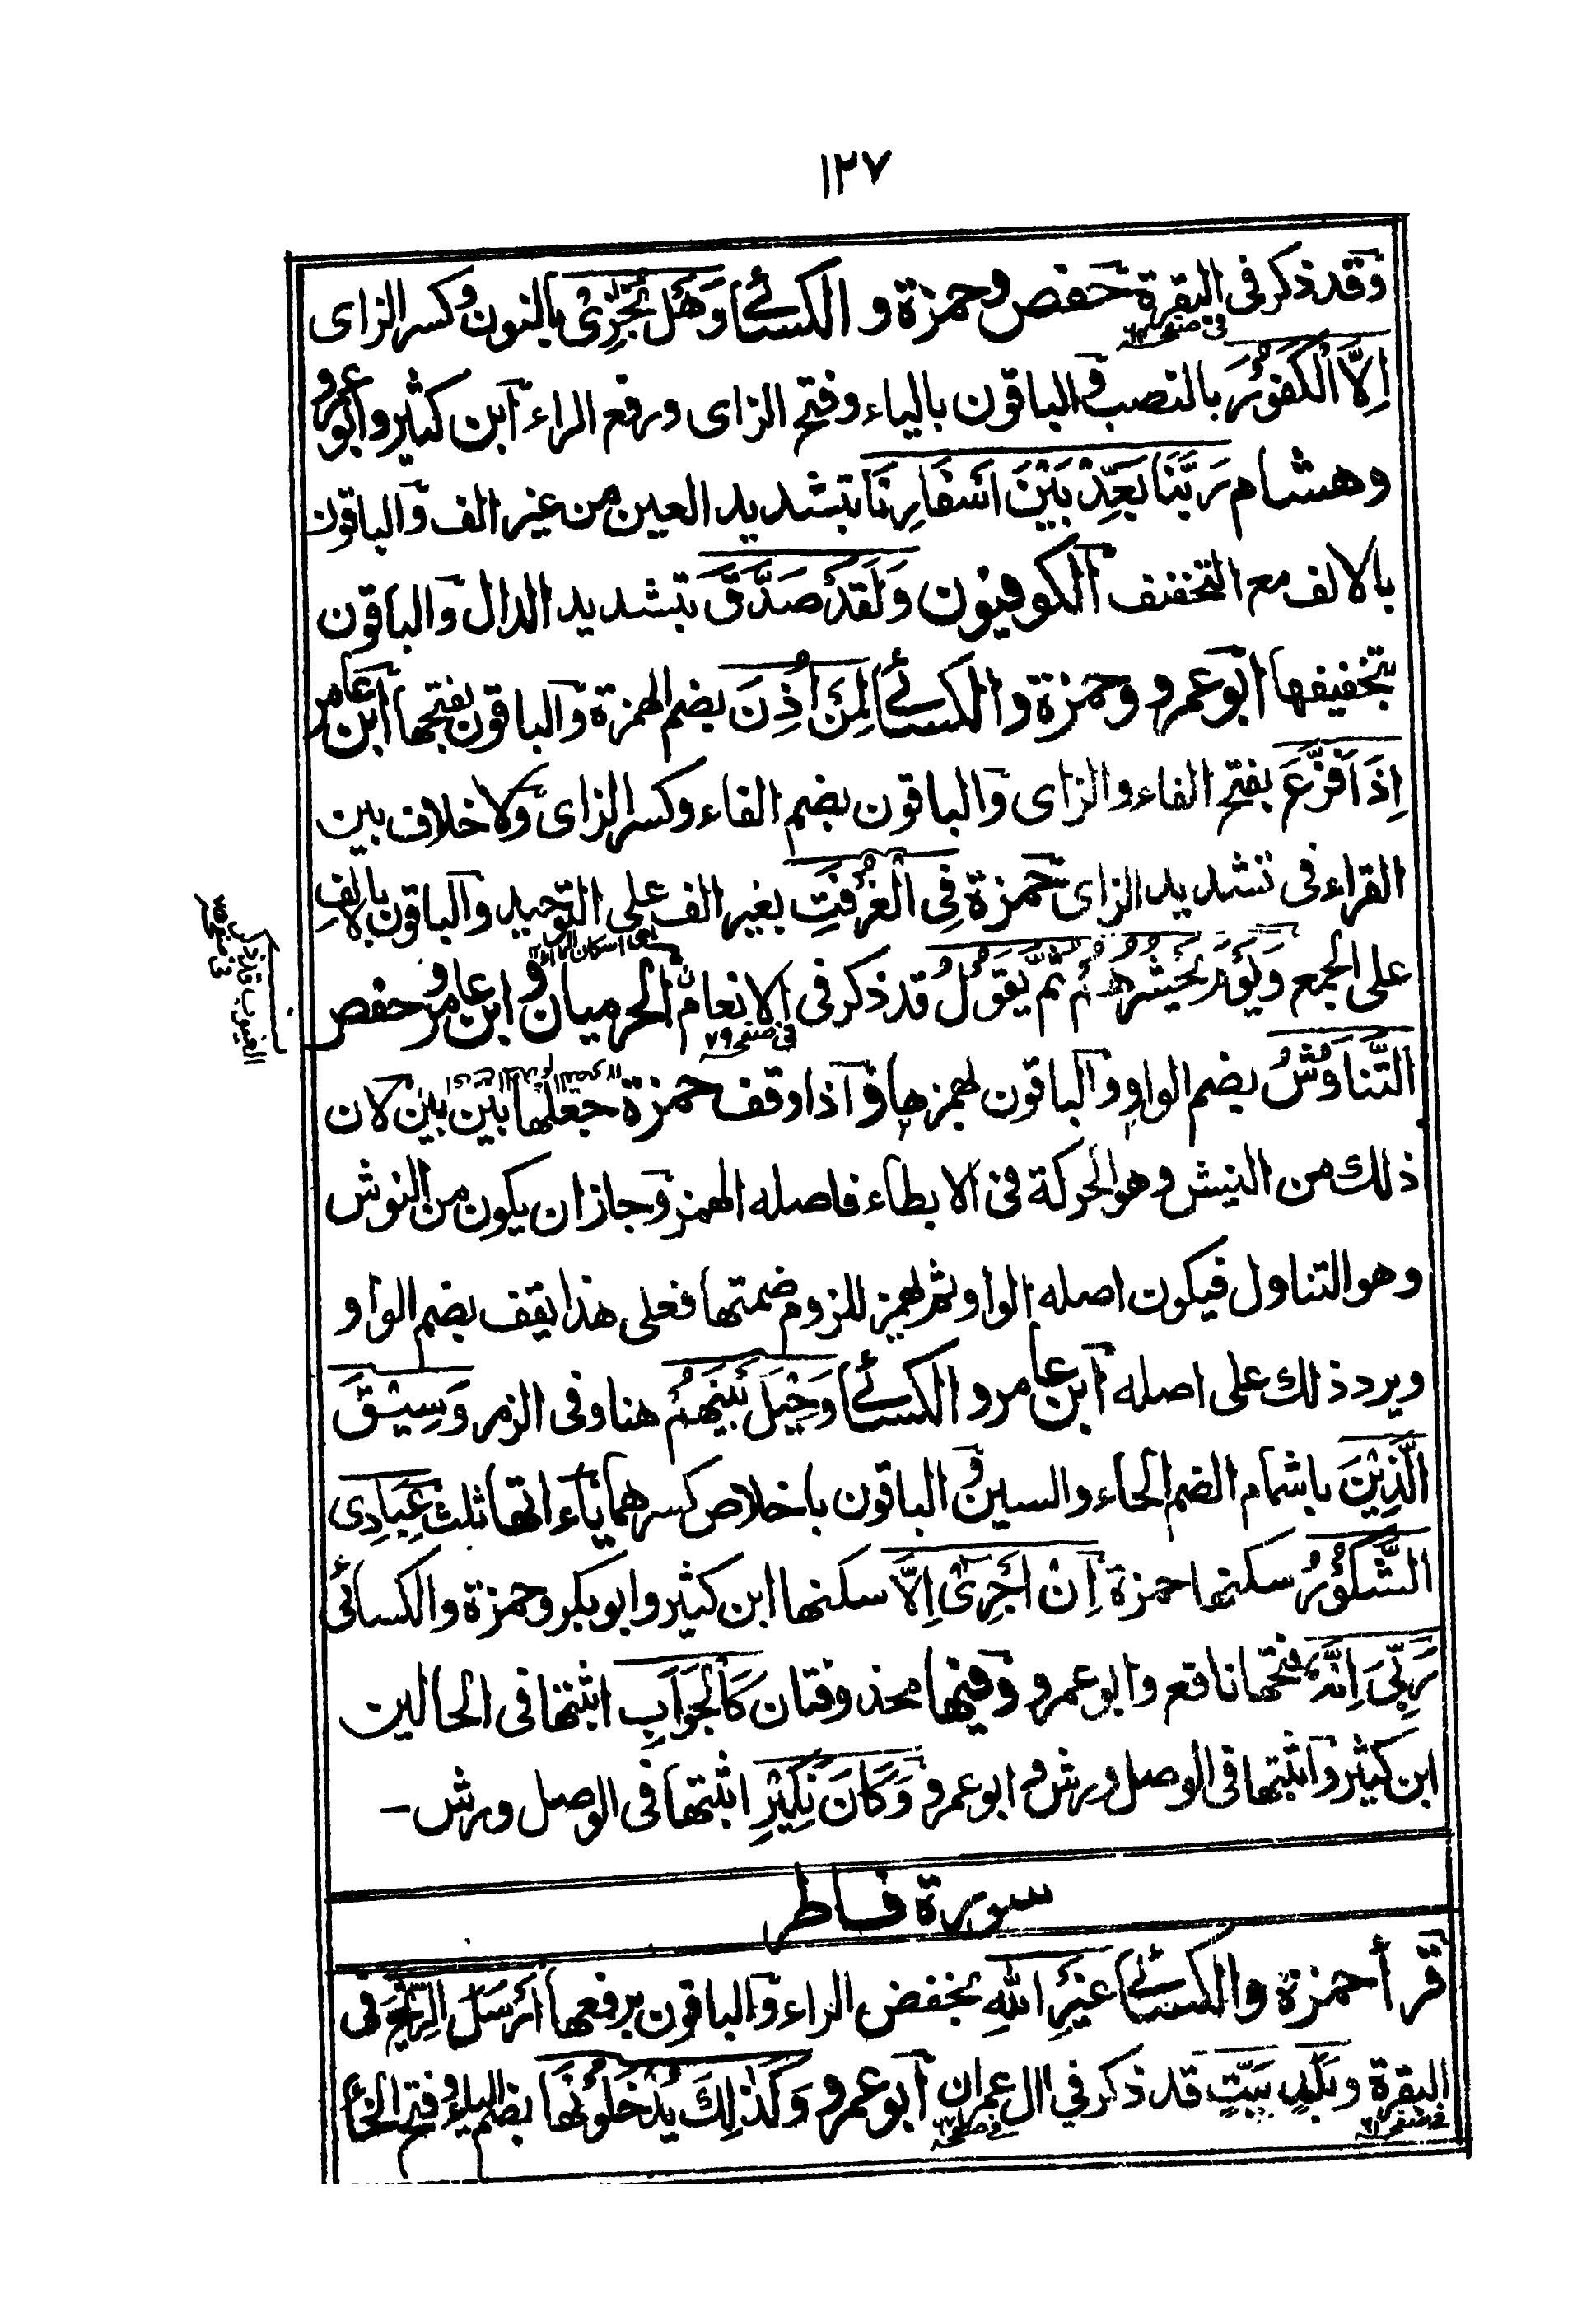 ١٢٧
وقد ذكر فى البقرة حفص وحمزة و الكسائى وَهَلْ نُجٰزِىْ بالنون وكسر الزاى
فى صفحه
اِلَّا الْكَفُوْرَ بالنصب والباقون بالياء وفتح الزاى ورفع الراء ابن كثير وابو عمرو
وهشام رَبَّنَا بَعِّدْ بَيْنَ اَسْفَارِنَا بتشديد العين من غير الف والباقون
بالالف مع التخفيف الكوفيون وَلَقَدْ صَدَّقَ بتشديد الدال والباقون
بتخفيفها ابو عمرو وحمزة والكسائى لِمَنْ اُذِنَ بضم الهمزة والباقون بفتحها ابن عامر
اِذَا فَزَّعَ بفتح الفاء والزاى والباقون بضم الفاء وكسر الزاى ولا خلاف بين
القراء فى تشديد الزاى حمزة فِى الْغُرْفَتِ بغير الف على التوحيد والباقون بالالف
على الجمع وَيَوْمَ نَحْشُرُهُمْ ثُمَّ يَقُوْلُ قد ذكر فى الانعام الحرميان وابن عامر وحفص
فى صفحه ٧٩
التَّنَاوُشُ بضم الواو والباقون بهمزها واذا وقف حمزة جعلها بين بين لان
ذلك من النيش وهو الحركة فى الابطاء فاصله الهمز وجاز ان يكون من النوش
وهو التناول فيكون اصله الواو ثم يهمز للزوم ضمتها فعلى هذا يقف بضم الواو
ويرد ذلك على اصله ابن عامر و الكسائى وَحِيْلَ بَيْنَهُمْ هنا وفى الزمر وَسِيْقَ
الَّذِيْنَ باشمام الضم الحاء والسين و الباقون باخلاص كسرهما ياءاتها ثلث عِبَادِى
الشَّكُوْرُ سكنها حمزة اِنْ اَجْرِىَ اِلَّا سكنها ابن كثير وابو بكر وحمزة والكسائى
رَبِّىَ اِنَّهٗ فتحها نافع وابو عمرو وفيها محذوفتان كَالْجَوَابِ اثبتها فى الحالين
ابن كثير واثبتها فى الوصل ورش و ابو عمرو وَكَانَ نَكِيْرِ اثبتها فى الوصل ورش -
سورة فاطر
قرأ حمزة والكسائى غَيْرِ اللهِ بخفض الراء والباقون برفعها اَرْسَلَ الرِّيٰحَ فى
البقرة وبَلَدٍ مَيِّتٍ قد ذكر في ال عمران ابو عمرو وَكَذٰلِكَ يُدْخَلُوْنَهَا بضم الياء وفتح الخاء